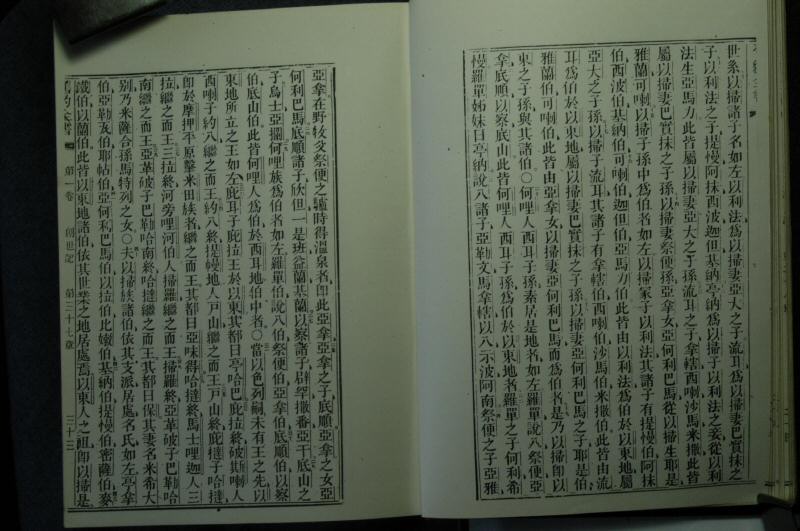 世系以掃諸子名如左以利法爲以掃妻亞大之子流耳爲以掃妻巴實抹之
子以利法之子提慢阿抹西波迦但基納亭納爲以掃子以利法之妾從以利
法生亞馬力此皆屬以掃妻亞大之子孫流耳之子拿轄西喇沙馬米撒此皆
屬以掃妻巴實抹之子孫以掃妻祭便孫亞拿女亞何利巴馬從以掃生耶是
雅蘭可喇以掃子孫中爲伯者如左以掃冢子以利法其諸子有提慢伯阿抹
伯西波伯基納伯可喇伯迦但伯亞馬力伯此皆由以利法爲伯於以東地屬
亞大之子孫以掃子流耳其諸子有拿轄伯西喇伯沙馬伯米撒伯此皆由流
耳爲伯於以東地屬以掃妻巴實抹之子孫以掃妻亞何利巴馬之子耶是伯
雅蘭伯可喇伯此皆由亞拿女以掃妻亞何利巴馬而爲伯者是乃以掃卽以
東之子孫與其諸伯○何哩人西耳子孫素居是地者名如左羅單說八祭便亞
拿底順以察底山此皆何哩人西耳子孫爲伯於以東地者羅單之子何利希
慢羅單姊妹曰亭納說八諸子亞勒文馬拿轄以八示波阿南祭便之子亞雅
亞拿在野牧父祭便之驢時得溫泉者卽此亞拿亞拿之子底順亞拿之女亞
何利巴馬底順諸子欣但一是班益蘭基蘭以察諸子辟罕撒番亞干底山之
子烏士亞攔何哩族爲伯者如左羅單伯說八伯祭便伯亞拿伯底順伯以察
伯底山伯此皆何哩人爲伯於西耳地伯中者○當以色列嗣未有王之先以
東地所立之王如左庇耳子庇拉王於以東其都曰亭哈巴庇拉終破斯喇人
西喇子約八繼之而王約八終提慢地人戸山繼之而王戸山終庇撻子哈撻
卽於摩押平原擊米田族者繼之而王其都曰亞味得哈撻終馬士哩迦人三
拉繼之而王三拉終河旁哩河伯人掃羅繼之而王掃羅終亞革破子巴勒哈
南繼之而王亞革破子巴勒哈南終哈撻繼之而王其都曰保其妻名米希大
別乃米薩合孫馬特列之女○夫以掃族諸伯依其支派居處名氏如左亭拿
伯亞勒瓦伯耶帖伯亞何利巴馬伯以拉伯比嫩伯基納伯提慢伯密薩伯麥
鐵伯以蘭伯此皆以東地諸伯依其世業之地居處焉以東人之祖卽以掃是
第一卷 創世記 第三十七章 三十三